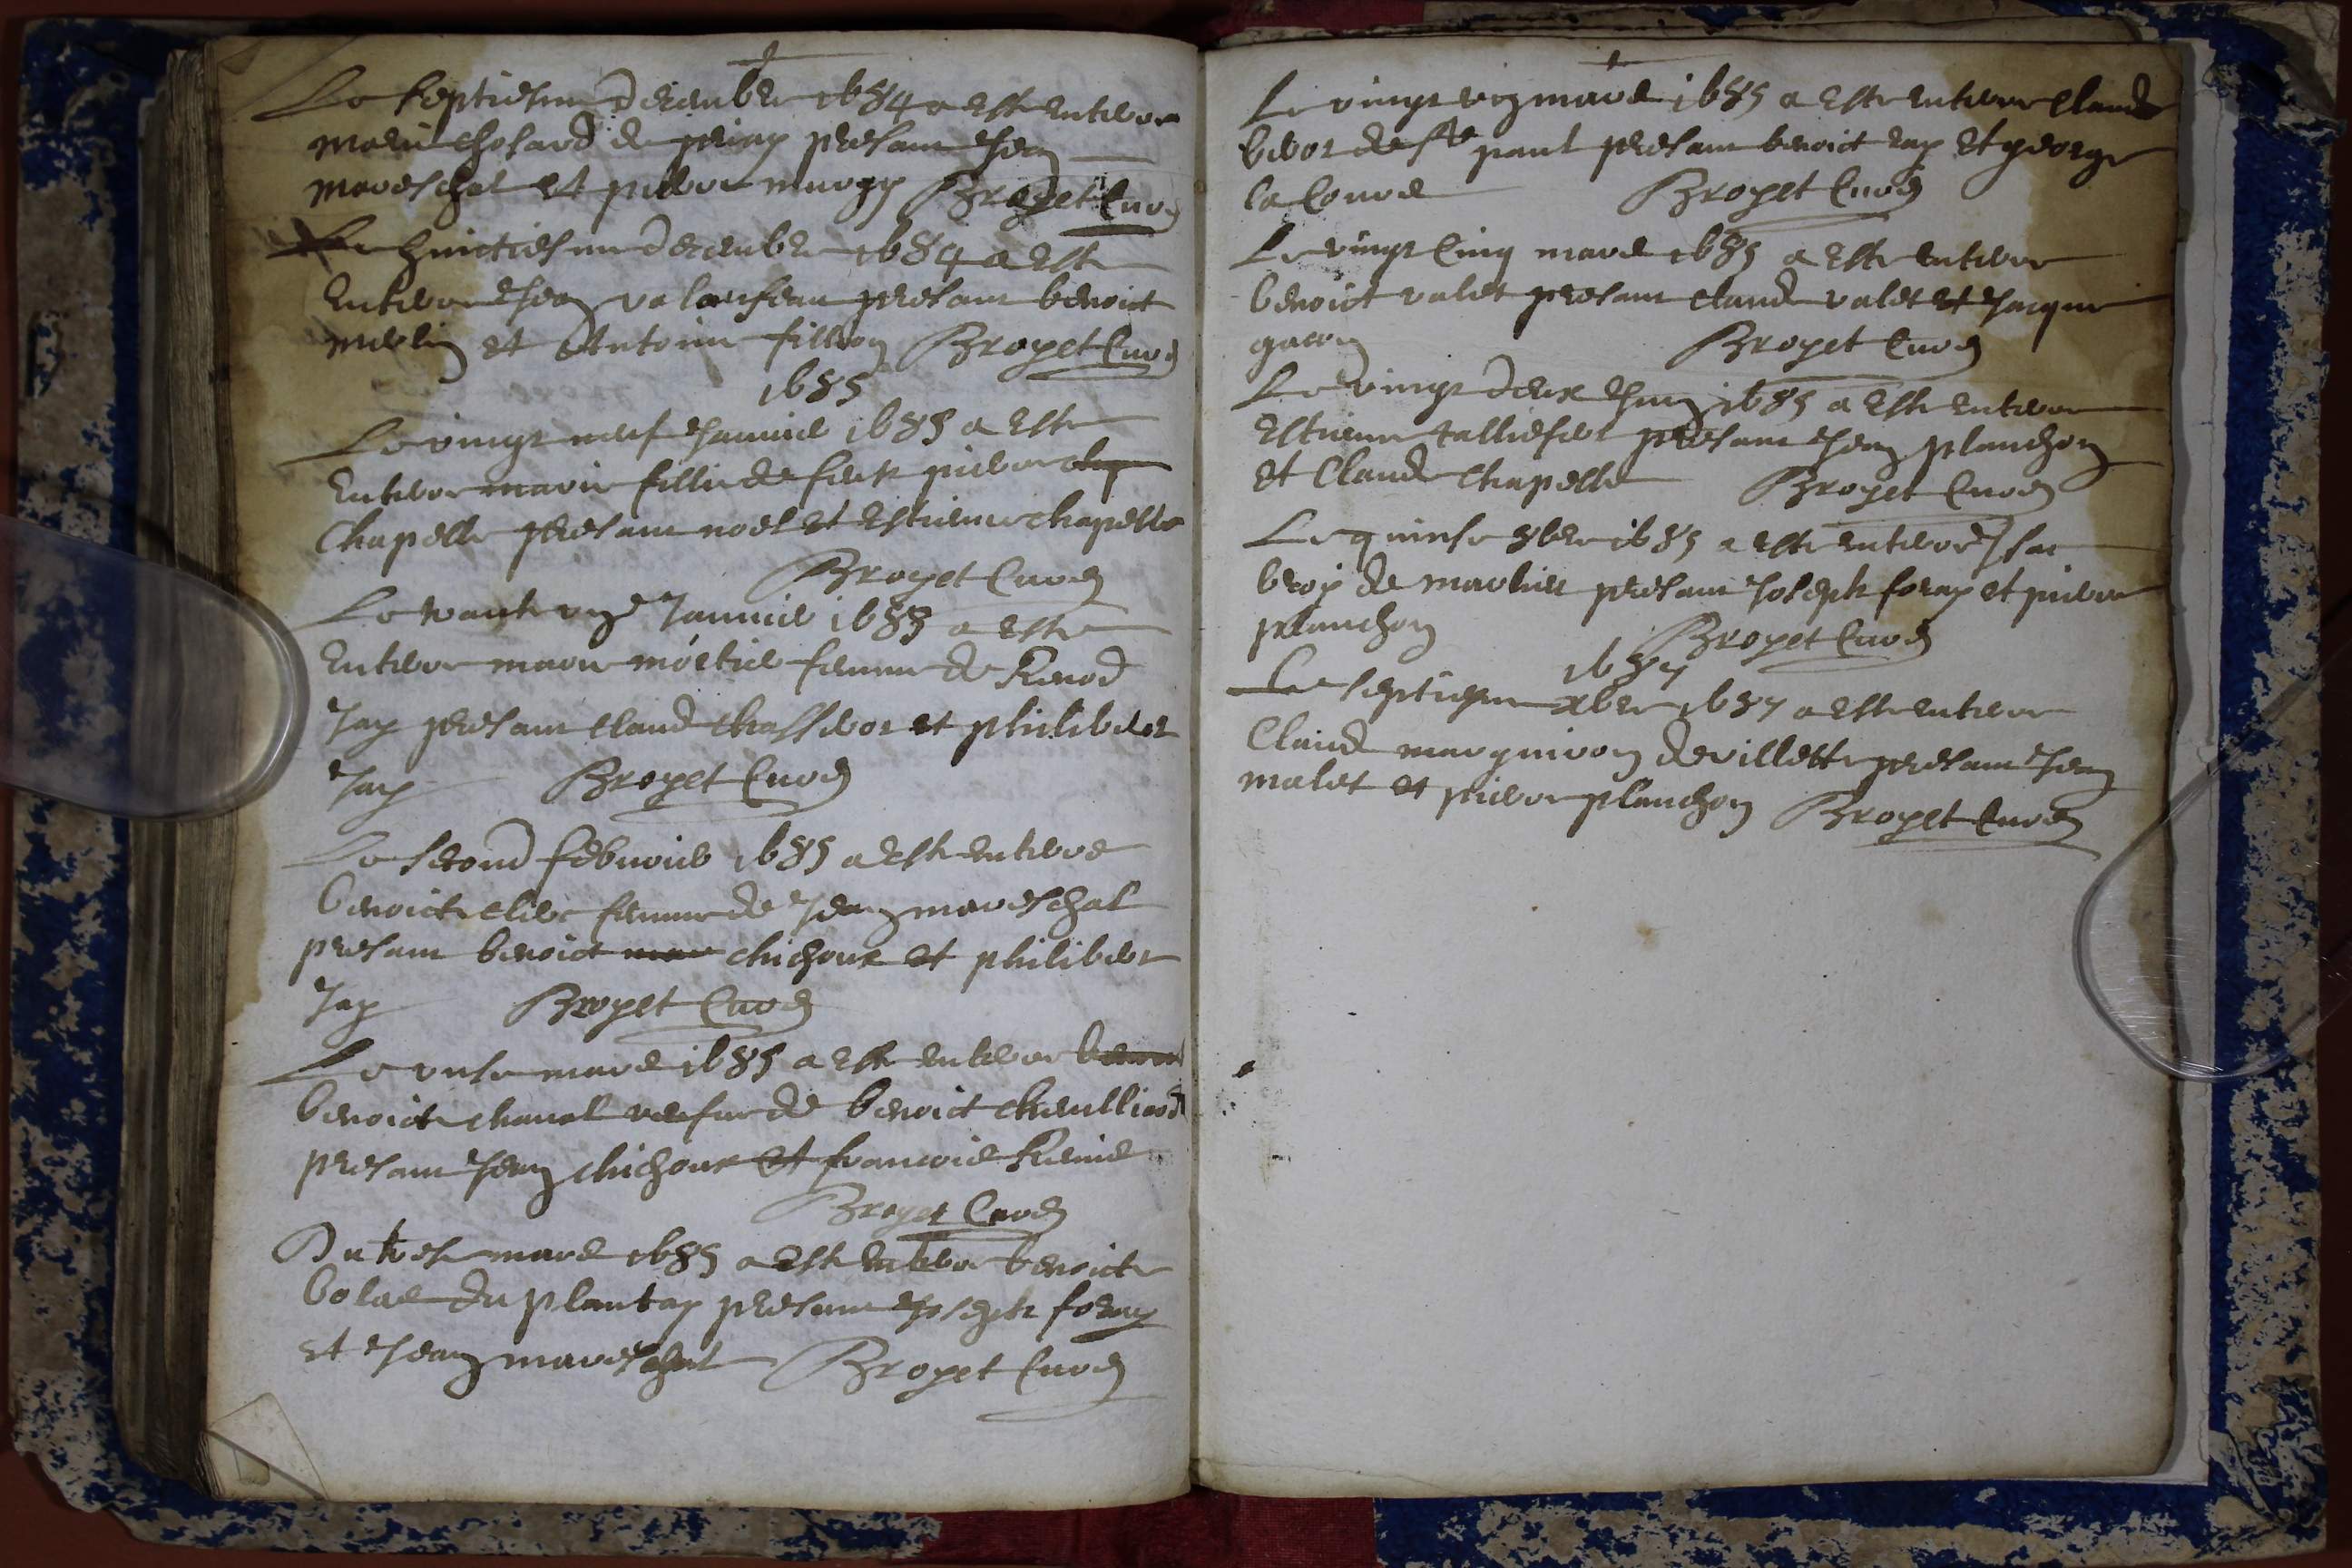 Le septiesme decembre 1684 a este enterre
marie chosard de priay presant Jean
mareschal et pierre murgy Broyet Curé
Le huictiesme decembre 1684 a este
enterre Jean presant benoict
merlin et Antoine fillion Broyet Curé
1685
Le vingt neuf Januier 1685 a este
enterre marie fillie de feu pierre
Chapelle presant noel et estienne chapelle
Broyet Curé
Le trante un Januier 1685 a este
enterre marie mortier femme de
Jay presant claud et philibert
Jay Broyet Curé
Le second febvrier 1685 a este enterre
benoicte clerc femme de Jean mareschal
presant benoict chichoux et philibert
Jay Broyet Curé
Le onse mars 1685 a este enterre
benoicte chanal vefue de benoict
presant Jean chichoux et francois
Broyet Curé
Du trese mars 1685 a este enterre benoicte
bolas du plantay presant Joseph foray
et Jean mareschal Broyet Curé
Le vingt mars 1685 a este enterre claude
de st paul presant benoict et george
la Broyet Curé
Le vingt cinq mars 1685 a este enterre
benoict valet presant claude valet et Jacque
Broyet Curé
Le vingt deux Juin 1685 a este enterre
estienne presant Jean planchon
et Claude Chapelle Broyet Curé
Le quinse 8bre 1685 a este enterre Isac
de marlieu presant Joseph foray et pierre
planchon Broyet Curé
1687
Le septiesme xbre 1687 a este enterre
Claude marguiron de villette presant Jean
malet et pierre planchon Broyet Curé